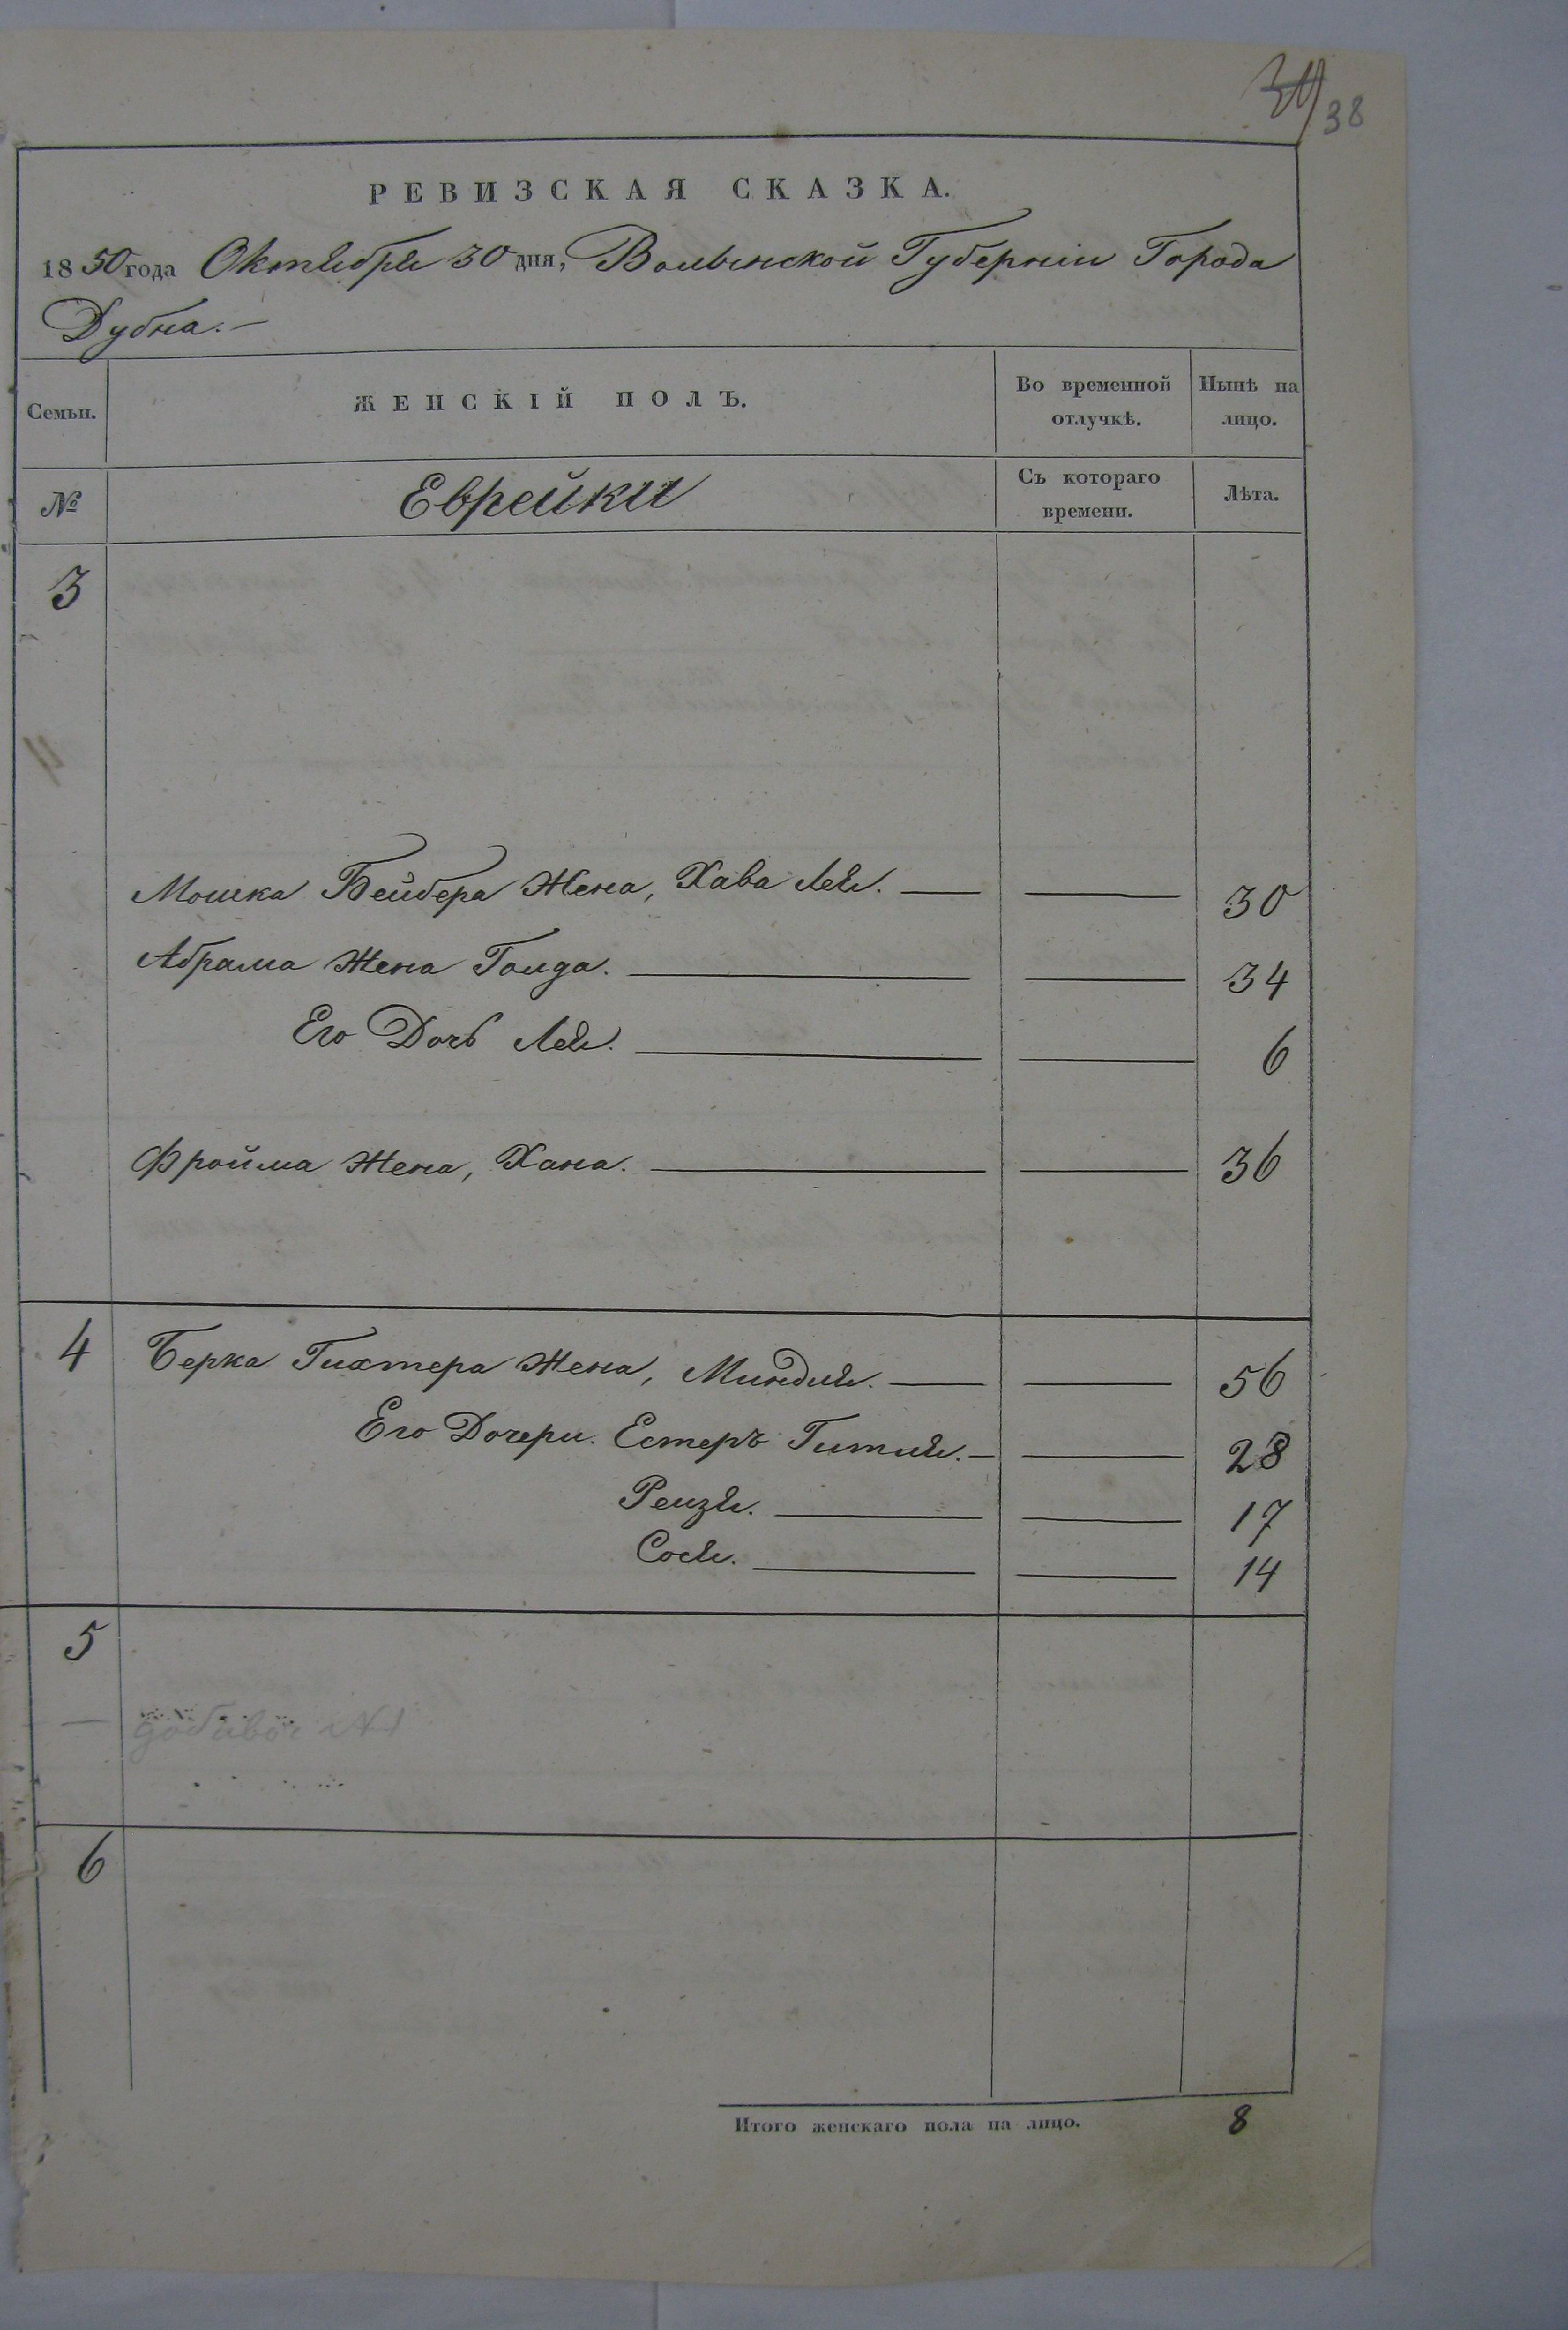 38
РЕВИЗСКАЯ СКАЗКА.
1850 года Октября 30 дня, Волынской Губерніи Города
Дубна.-
Семьи.
ЖЕНСКІЙ ПОЛЪ.
Во временной отлучкѣ.
Нынѣ на лицо.
№
Еврейки
Съ котораго времени.
Лѣта.
3
Мошка Бейдера Жена, Хава Лея. 30
Абрама Жена Голда. 34
Его Дочь Лея. 6
Фройма Жена, Хана. 36
4 Берка Гихтера Жена, Миндля. 56
Его Дочери. Естеръ Гитля. 28
Рейзя. 17
Сося. 14
5
добавоч №1
6
Итого женскаго пола на лицо. 8